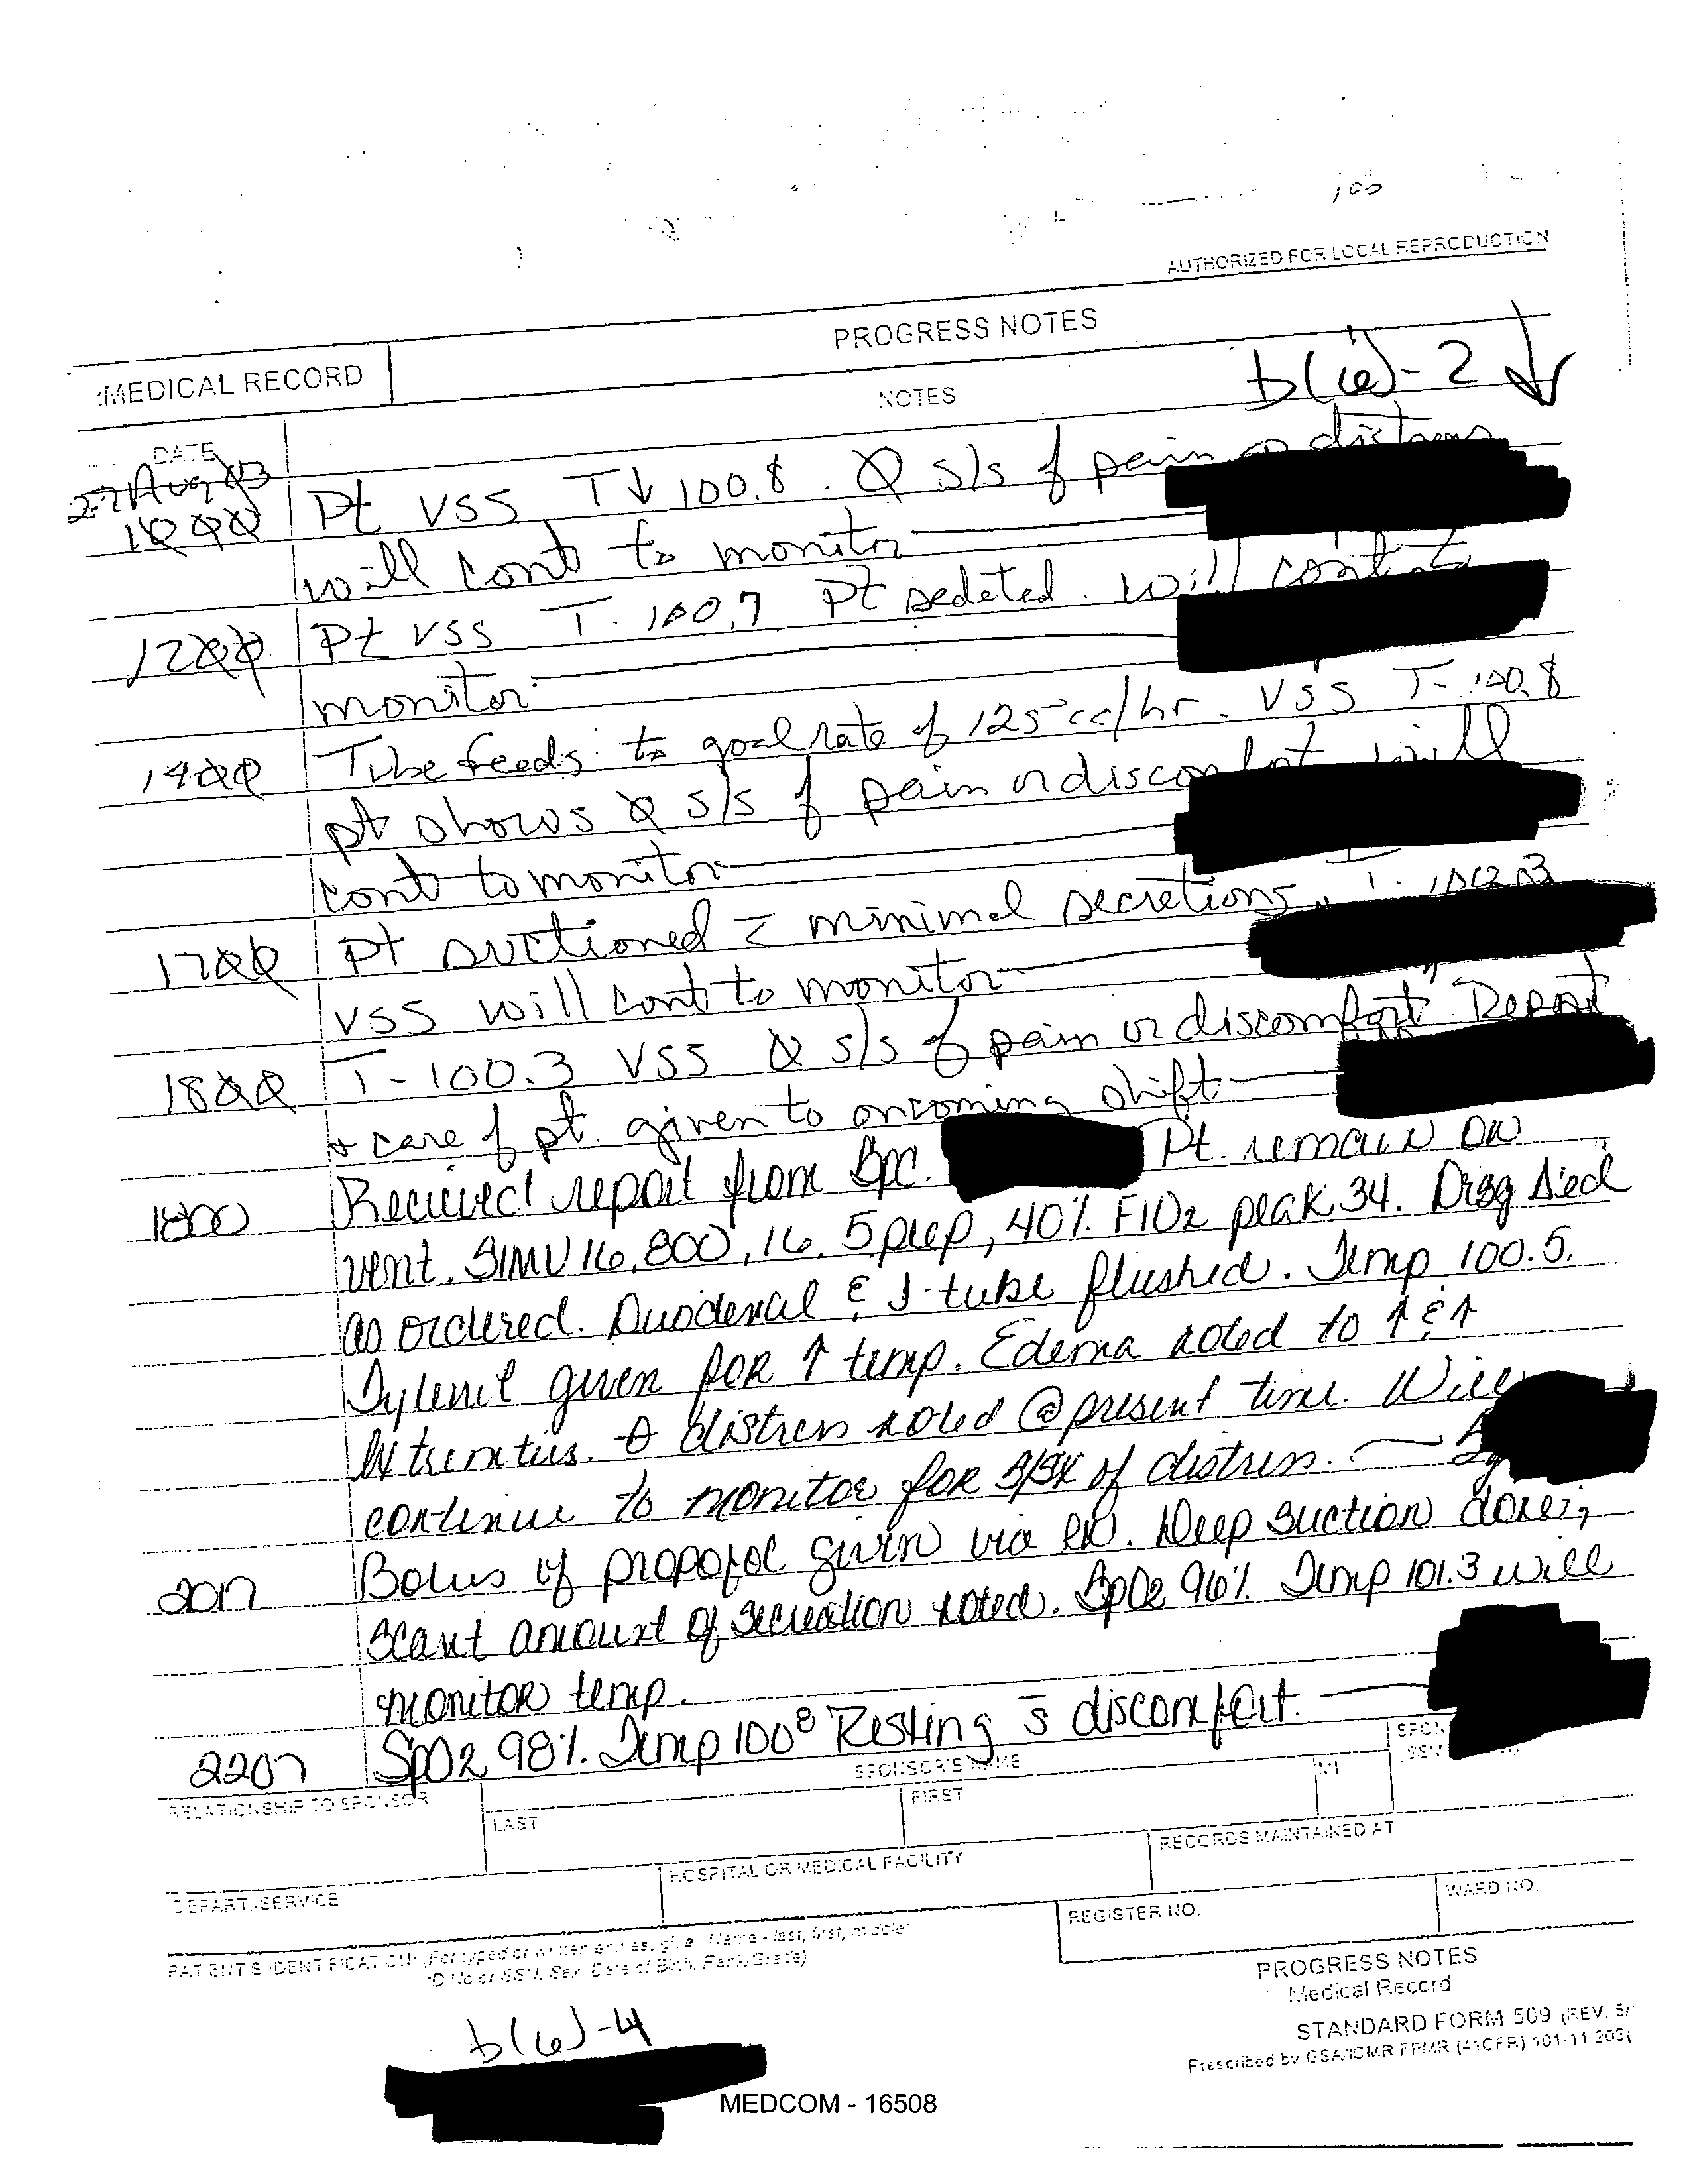 AUTHORIZED FOR LOCAL REPRODUCTION
MEDICAL RECORD
PROGRESS NOTES
NOTES
b(6)-2 ↓
DATE
27 Aug 03
Pt VSS T↓ 100.8. Ø s/s of pain or distress
will cont to monitor
1200 Pt VSS T. 100.7 Pt sedated. Will cont to
monitor
1400 Tube feeds to goal rate of 125 cc/hr. VSS T- 100.8
pt shows Ø s/s of pain or discomfort will
cont to monitor
1700 Pt suctioned c̄ minimal secretions. T.
VSS will cont to monitor
1800 T-100.3 VSS Ø s/s of pain or discomfort Report
+ care of pt. given to oncoming shift
1800 Recieved report from Spc. Pt. remain on
vent. SIMV 16, 800, 16. 5 peep, 40% FIO2 peak 34. Drsg Δ'ed
as ordered. Duodenal & J-tube flushed. Temp 100.5.
Tylenol given for ↑ temp. Edema noted to ↑ & ↑
extremities. Ø distress noted @ present time. Will
continue to monitor for S/SX of distress.
2017 Bolus of propofol given via RN. Deep suction done;
scant amount of secreation noted. SpO2 96% Temp 101.3 will
monitor temp.
2207 SpO2 98%. Temp 100⁸ Resting s̄ discomfort.
RELATIONSHIP TO SPONSOR
SPONSOR'S NAME
LAST
FIRST
MI
DEPART./SERVICE
HOSPITAL OR MEDICAL FACILITY
RECORDS MAINTAINED AT
PATIENT'S IDENTIFICATION: (For typed or written entries, give: Name - last, first, middle;
ID No or SSN; Sex; Date of Birth; Rank/Grade)
REGISTER NO.
WARD NO.
PROGRESS NOTES
Medical Record
STANDARD FORM 509 (REV. 5/
Prescribed by GSA/ICMR FPMR (41CFR) 101-11.203(
b(6)-4
MEDCOM - 16508